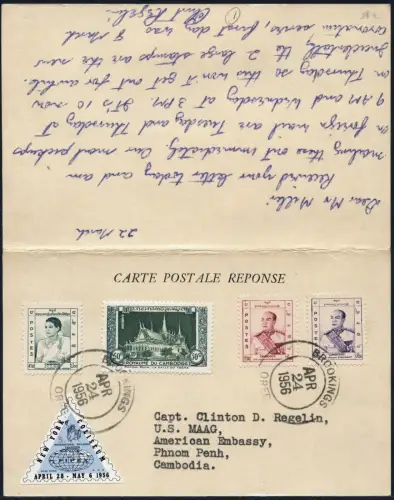 22 March
Dear Mr Miller:
Received your letter today and am
mailing these out immediately. Our mail pickups
on foreign mail are Tuesday and Thursday at
9 AM and Wednesday at 3 PM. It's 10 now
on Thursday so this won't get out for awhile.
Incidentally the 2 large stamps are the new
coronation series, first day was 8 March
Clint Regelin
1
CARTE POSTALE REPONSE
POSTES
50ᶜ
50ᶜ
ROYAUME DU CAMBODGE
POSTES
POSTES
BROOKINGS
APR
24
1956
OREG.
BROOKINGS
APR
24
1956
OREG.
Capt. Clinton D. Regelin,
U.S. MAAG,
American Embassy,
Phnom Penh,
Cambodia.
NEW YORK COLISEUM
FIPEX
APRIL 28 - MAY 6 1956